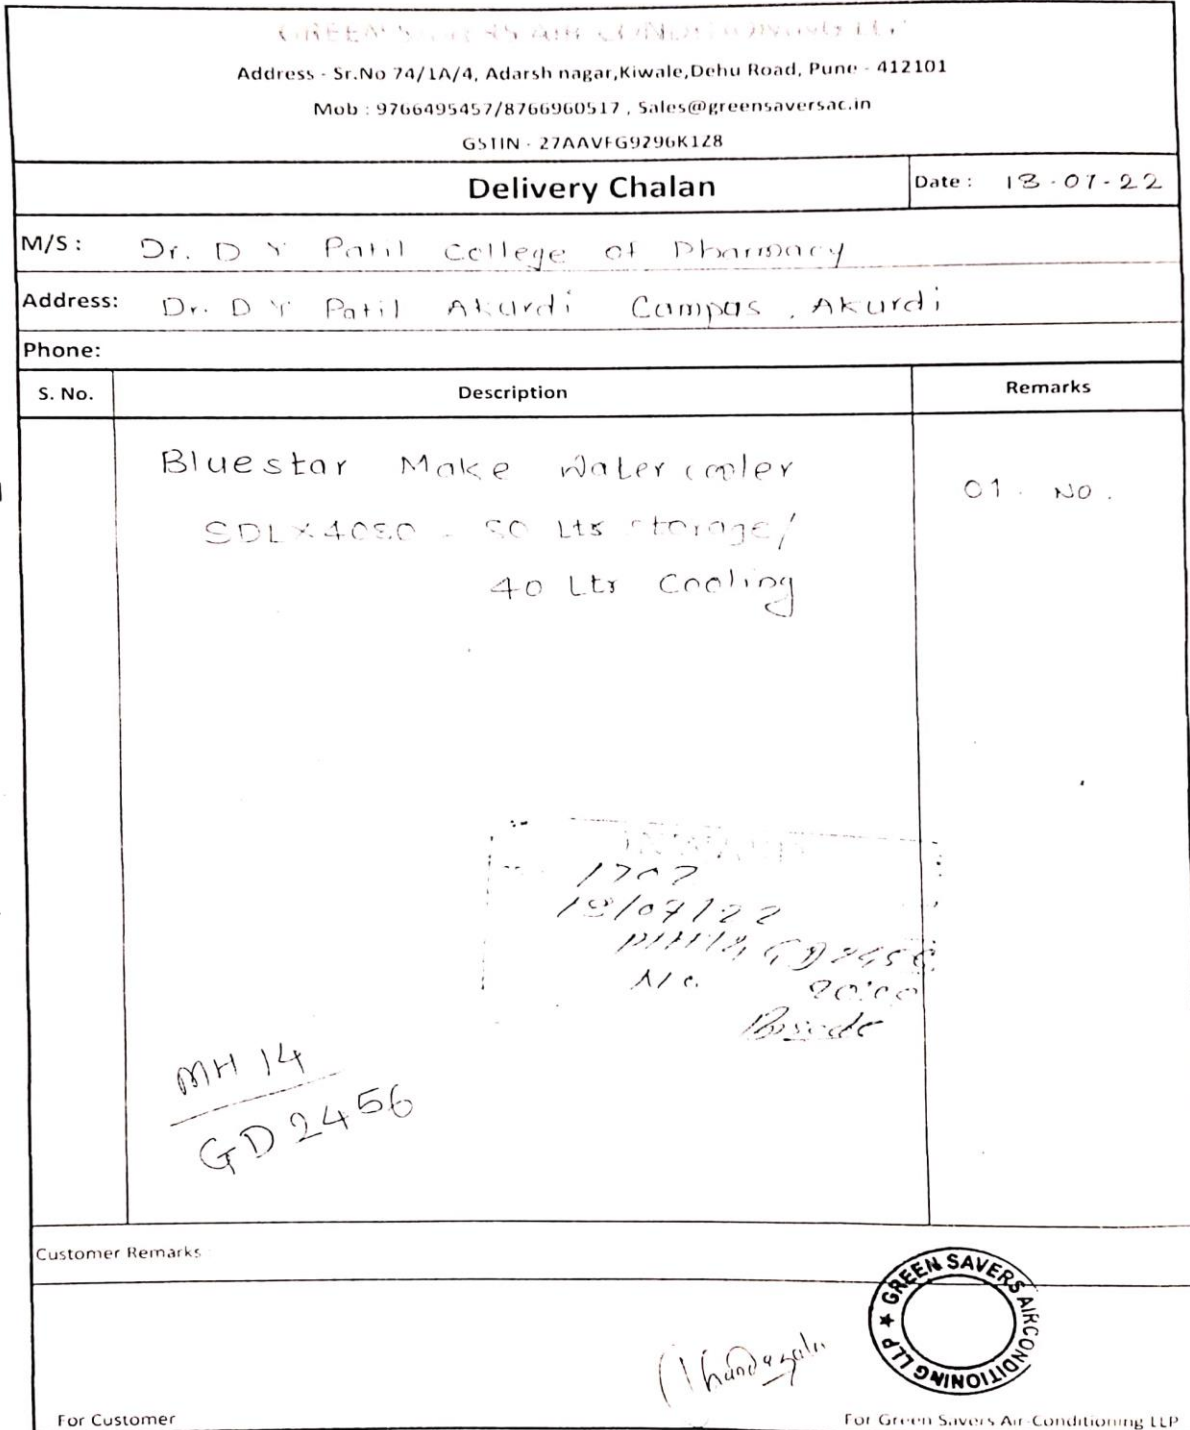 GREEN SAVERS AIR CONDITIONING LLP
Address - Sr.No 74/1A/4, Adarsh nagar,Kiwale,Dehu Road, Pune - 412101
Mob : 9766495457/8766960517 , Sales@greensaversac.in
GSTIN - 27AAVFG9296K1Z8
Delivery Chalan
Date : 18-07-22
M/S : Dr. D Y Patil College of Pharmacy
Address: Dr. D Y Patil Akurdi Campus, Akurdi
Phone:
S. No. Description Remarks
Bluestar Make Water cooler
01. NO.
SDLX4080 - 80 Lts storage/
40 Ltr Cooling
INWARD
18/07/22
MH14 GD 2456
MH 14
GD 2456
Customer Remarks :
GREEN SAVERS AIRCONDITIONING LLP ★
For Customer
For Green Savers Air-Conditioning LLP